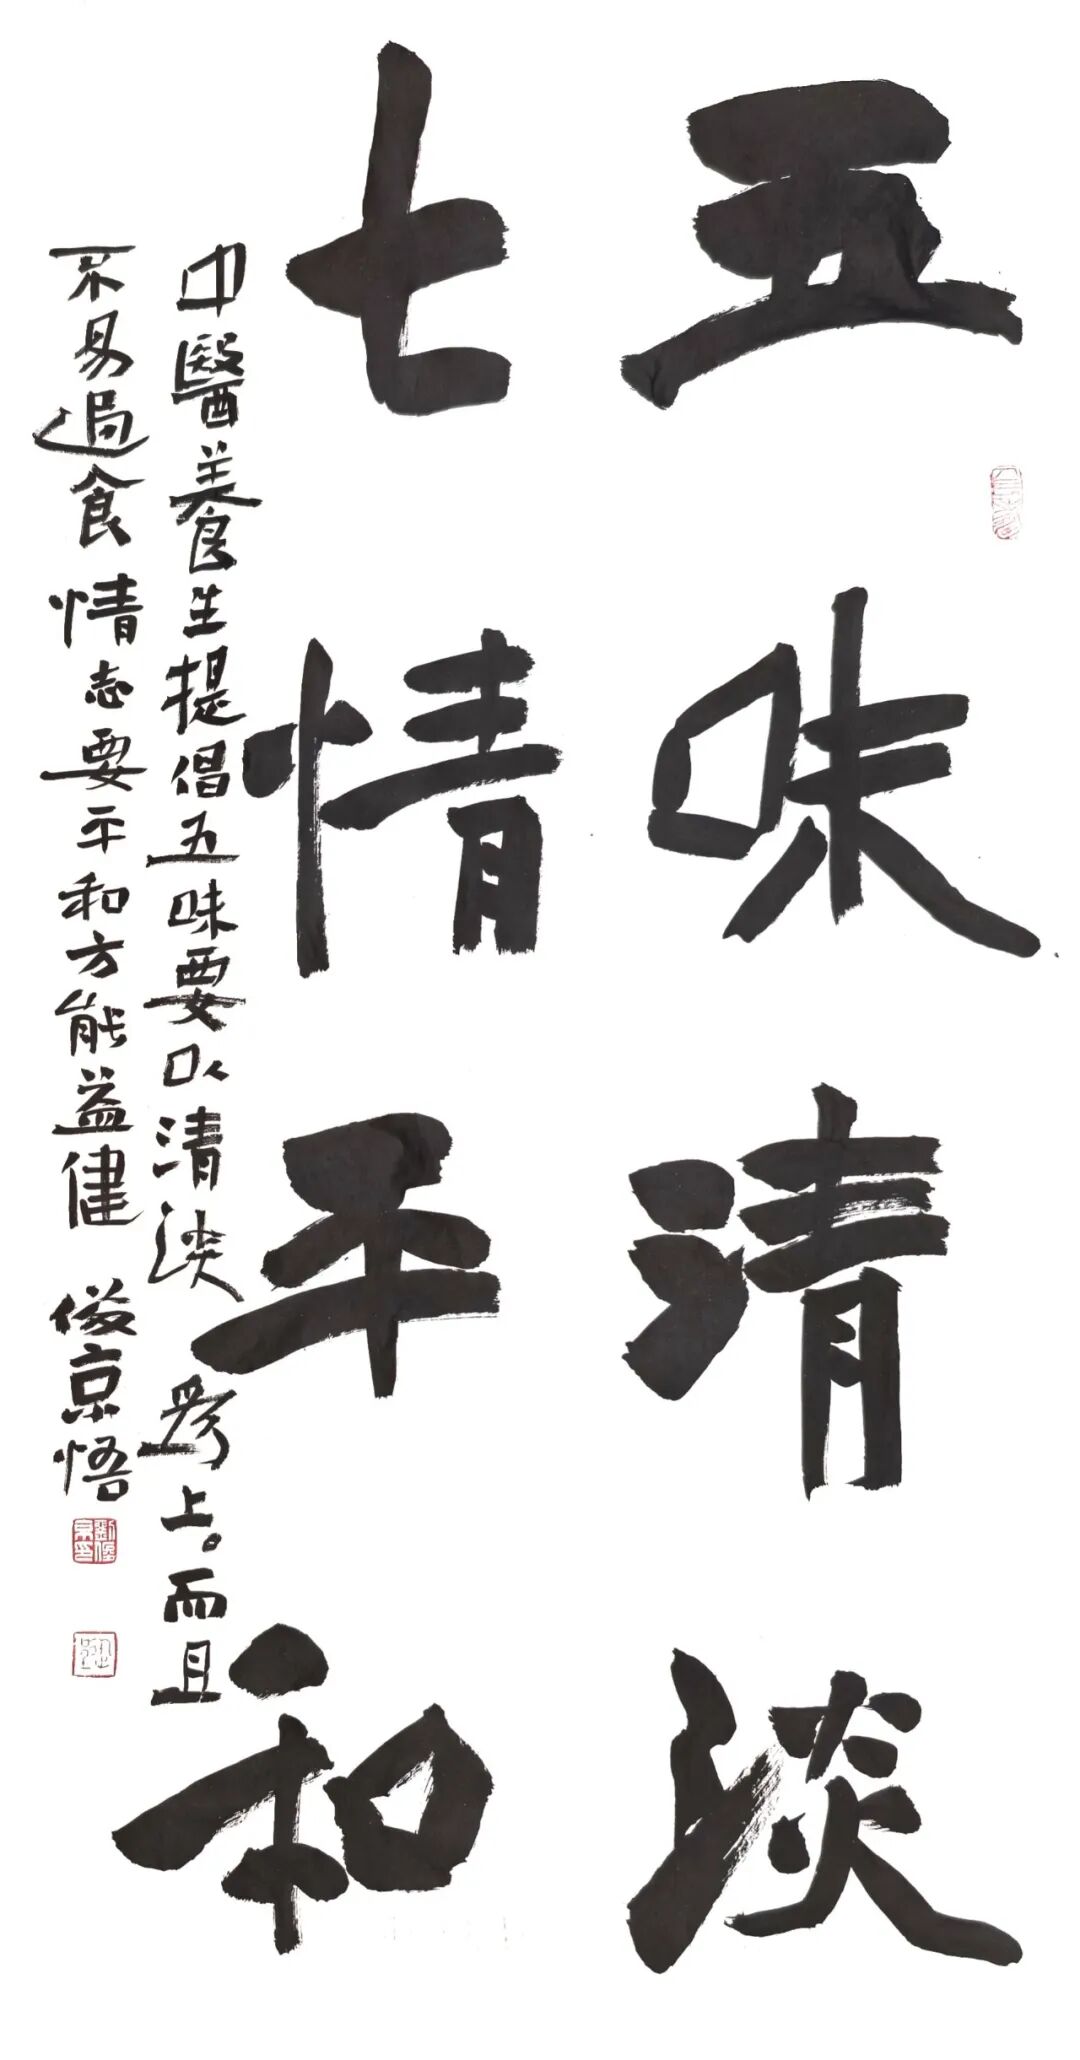 五味清淡
七情平和
中醫養生提倡五味要以清淡爲上。而且
不易過食情志要平和方能益健 俊京悟
劉俊京印